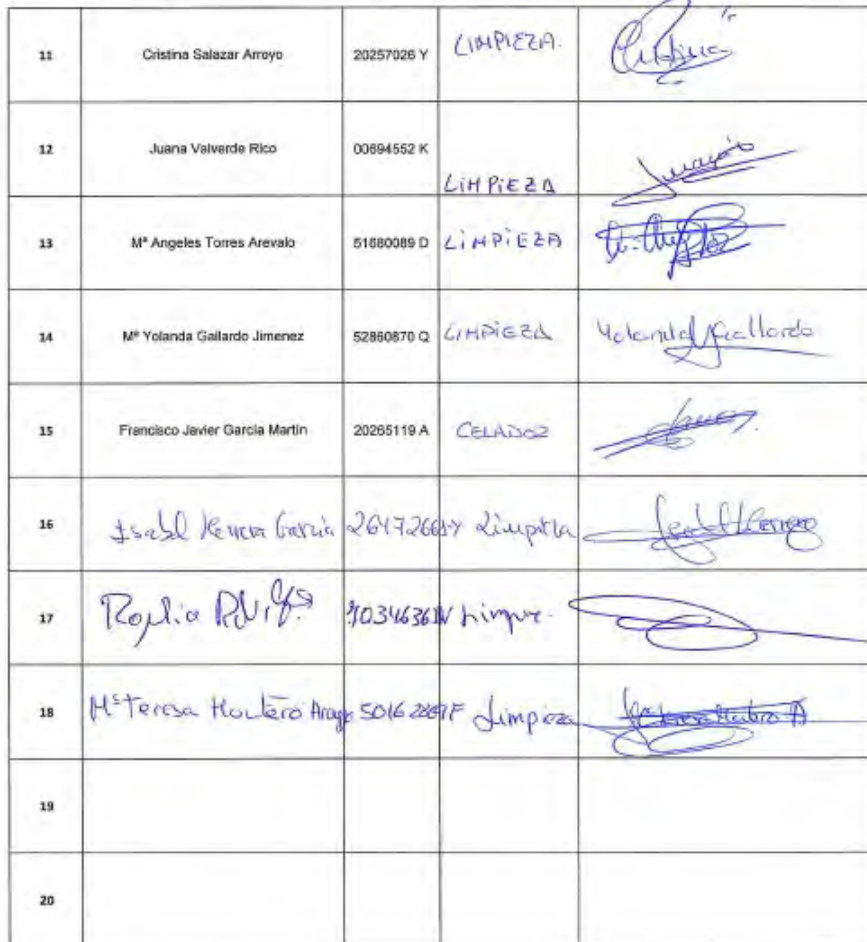 11 Cristina Salazar Arroyo 20257026 Y LIMPIEZA. Cristina
12 Juana Valverde Rico 00694552 K LIMPIEZA
13 Mª Angeles Torres Arevalo 51680089 D LIMPIEZA
14 Mª Yolanda Gallardo Jimenez 52860870 Q LIMPIEZA Yolanda Gallardo
15 Francisco Javier Garcia Martin 20265119 A CELADOR
16 Isabel Herrera Garcia Limpieza
17
18 Mª Teresa Montero Limpieza
19
20